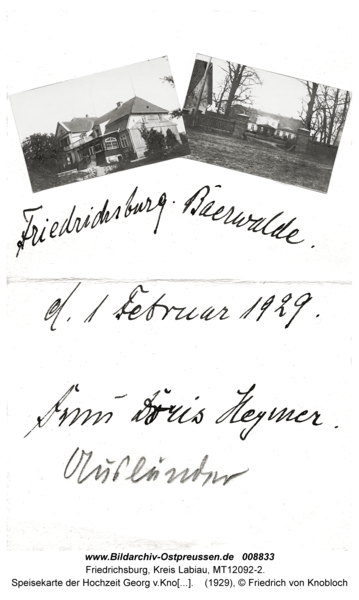 Friedrichsburg. Bärwalde.
d. 1 Februar 1929.
Frau Doris Heymer.
Ausländer
www.Bildarchiv-Ostpreussen.de 008833
Friedrichsburg, Kreis Labiau, MT12092-2.
Speisekarte der Hochzeit Georg v.Kno[...]. (1929), © Friedrich von Knobloch